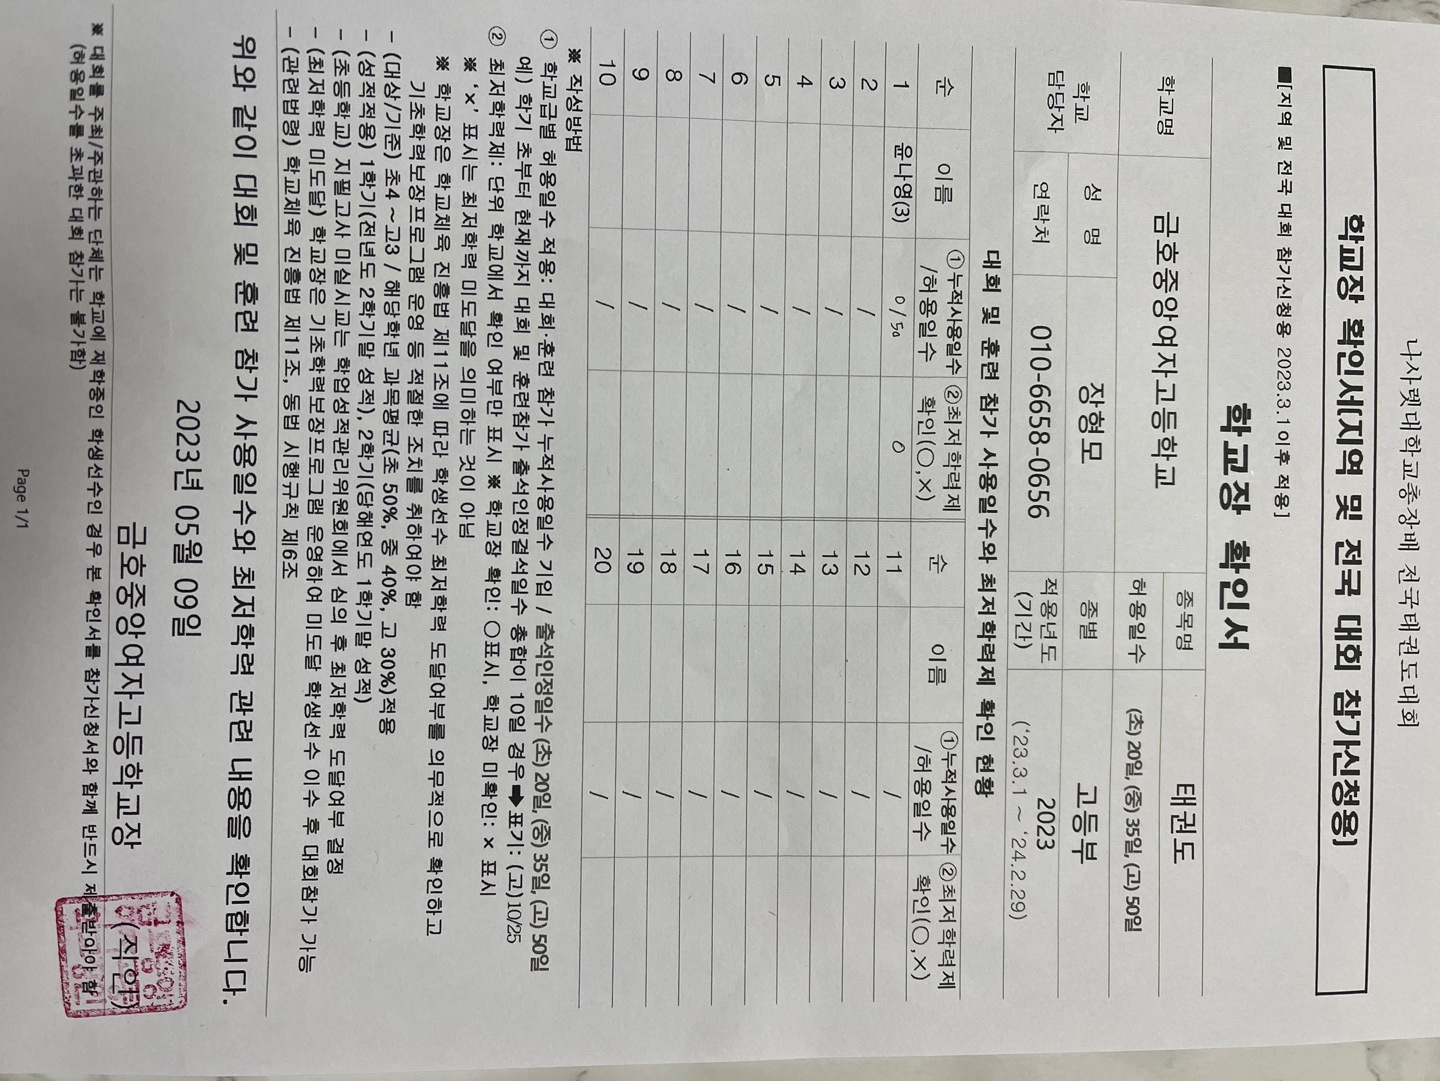 나사렛대학교총장배 전국태권도대회
학교장 확인서(지역 및 전국 대회 참가신청용)
■[지역 및 전국 대회 참가신청용 2023.3.1이후 적용]
학교장 확인서
학교명 금호중앙여자고등학교 종목명 태권도
허용일수 (초) 20일, (중) 35일, (고) 50일
학교 담당자 성 명 장형모 종별 고등부
연락처 010-6658-0656 적용년도 (기간) 2023 ('23.3.1 ~ '24.2.29)
대회 및 훈련 참가 사용일수와 최저학력제 확인 현황
순 이름 ①누적사용일수 /허용일수 ②최저학력제 확인(○,×) 순 이름 ①누적사용일수 /허용일수 ②최저학력제 확인(○,×)
1 윤나영(3) 0/50 ○ 11 /
2 / 12 /
3 / 13 /
4 / 14 /
5 / 15 /
6 / 16 /
7 / 17 /
8 / 18 /
9 / 19 /
10 / 20 /
※ 작성방법
① 학교급별 허용일수 적용: 대회·훈련 참가 누적사용일수 기입 / 출석인정일수 (초) 20일, (중) 35일, (고) 50일
예) 학기 초부터 현재까지 대회 및 훈련참가 출석인정결석일수 총합이 10일 경우➡ 표기: (고)10/25
② 최저학력제: 단위 학교에서 확인 여부만 표시 ※ 학교장 확인: ○표시, 학교장 미확인: × 표시
※ '×' 표시는 최저학력 미도달을 의미하는 것이 아님
※ 학교장은 학교체육 진흥법 제11조에 따라 학생선수 최저학력 도달여부를 의무적으로 확인하고
기초학력보장프로그램 운영 등 적절한 조치를 취하여야 함
- (대상/기준) 초4 ~ 고3 / 해당학년 과목평균(초 50%, 중 40%, 고 30%)적용
- (성적적용) 1학기(전년도 2학기말 성적), 2학기(당해연도 1학기말 성적)
- (초등학교) 지필고사 미실시교는 학업성적관리위원회에서 심의 후 최저학력 도달여부 결정
- (최저학력 미도달) 학교장은 기초학력보장프로그램 운영하여 미도달 학생선수 이수 후 대회참가 가능
- (관련법령) 학교체육 진흥법 제11조, 동법 시행규칙 제6조
위와 같이 대회 및 훈련 참가 사용일수와 최저학력 관련 내용을 확인합니다.
2023년 05월 09일
금호중앙여자고등학교장 (직인)
※ 대회를 주최/주관하는 단체는 학교에 재학중인 학생선수인 경우 본 확인서를 참가신청서와 함께 반드시 제출받아야 함
(허용일수를 초과한 대회 참가는 불가함)
Page 1/1